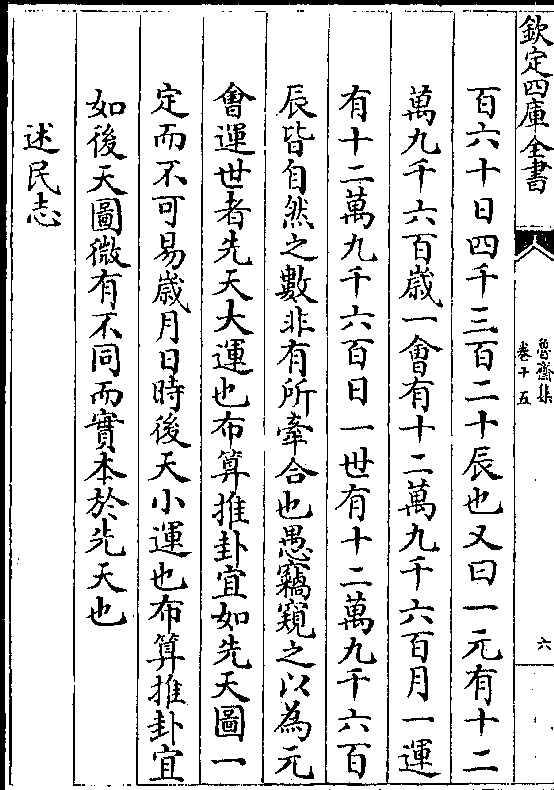 欽定四庫全書
魯齋集
卷十五
六
百六十日四千三百二十辰也又曰一元有十二
萬九千六百歳一會有十二萬九千六百月一運
有十二萬九千六百日一世有十二萬九千六百
辰皆自然之數非有所牽合也愚竊窺之以為元
㑹運世者先天大運也布算推卦宜如先天圖一
定而不可易歳月日時後天小運也布算推卦宜
如後天圖微有不同而實本於先天也
述民志